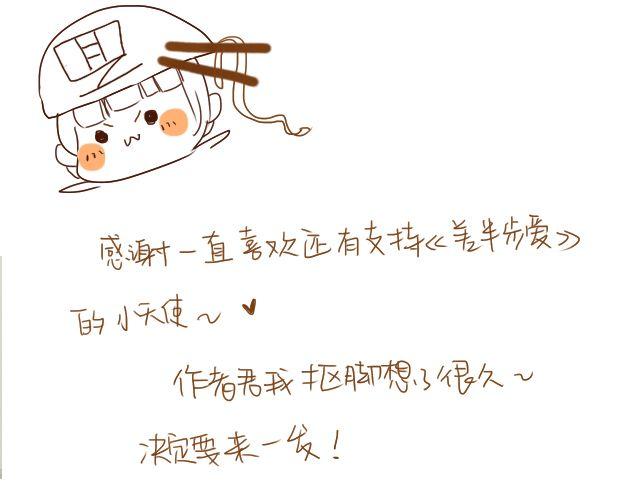 感谢一直喜欢还有支持《差半步爱》
的小天使～
作者君我抠脚想了很久～
决定要来一发！